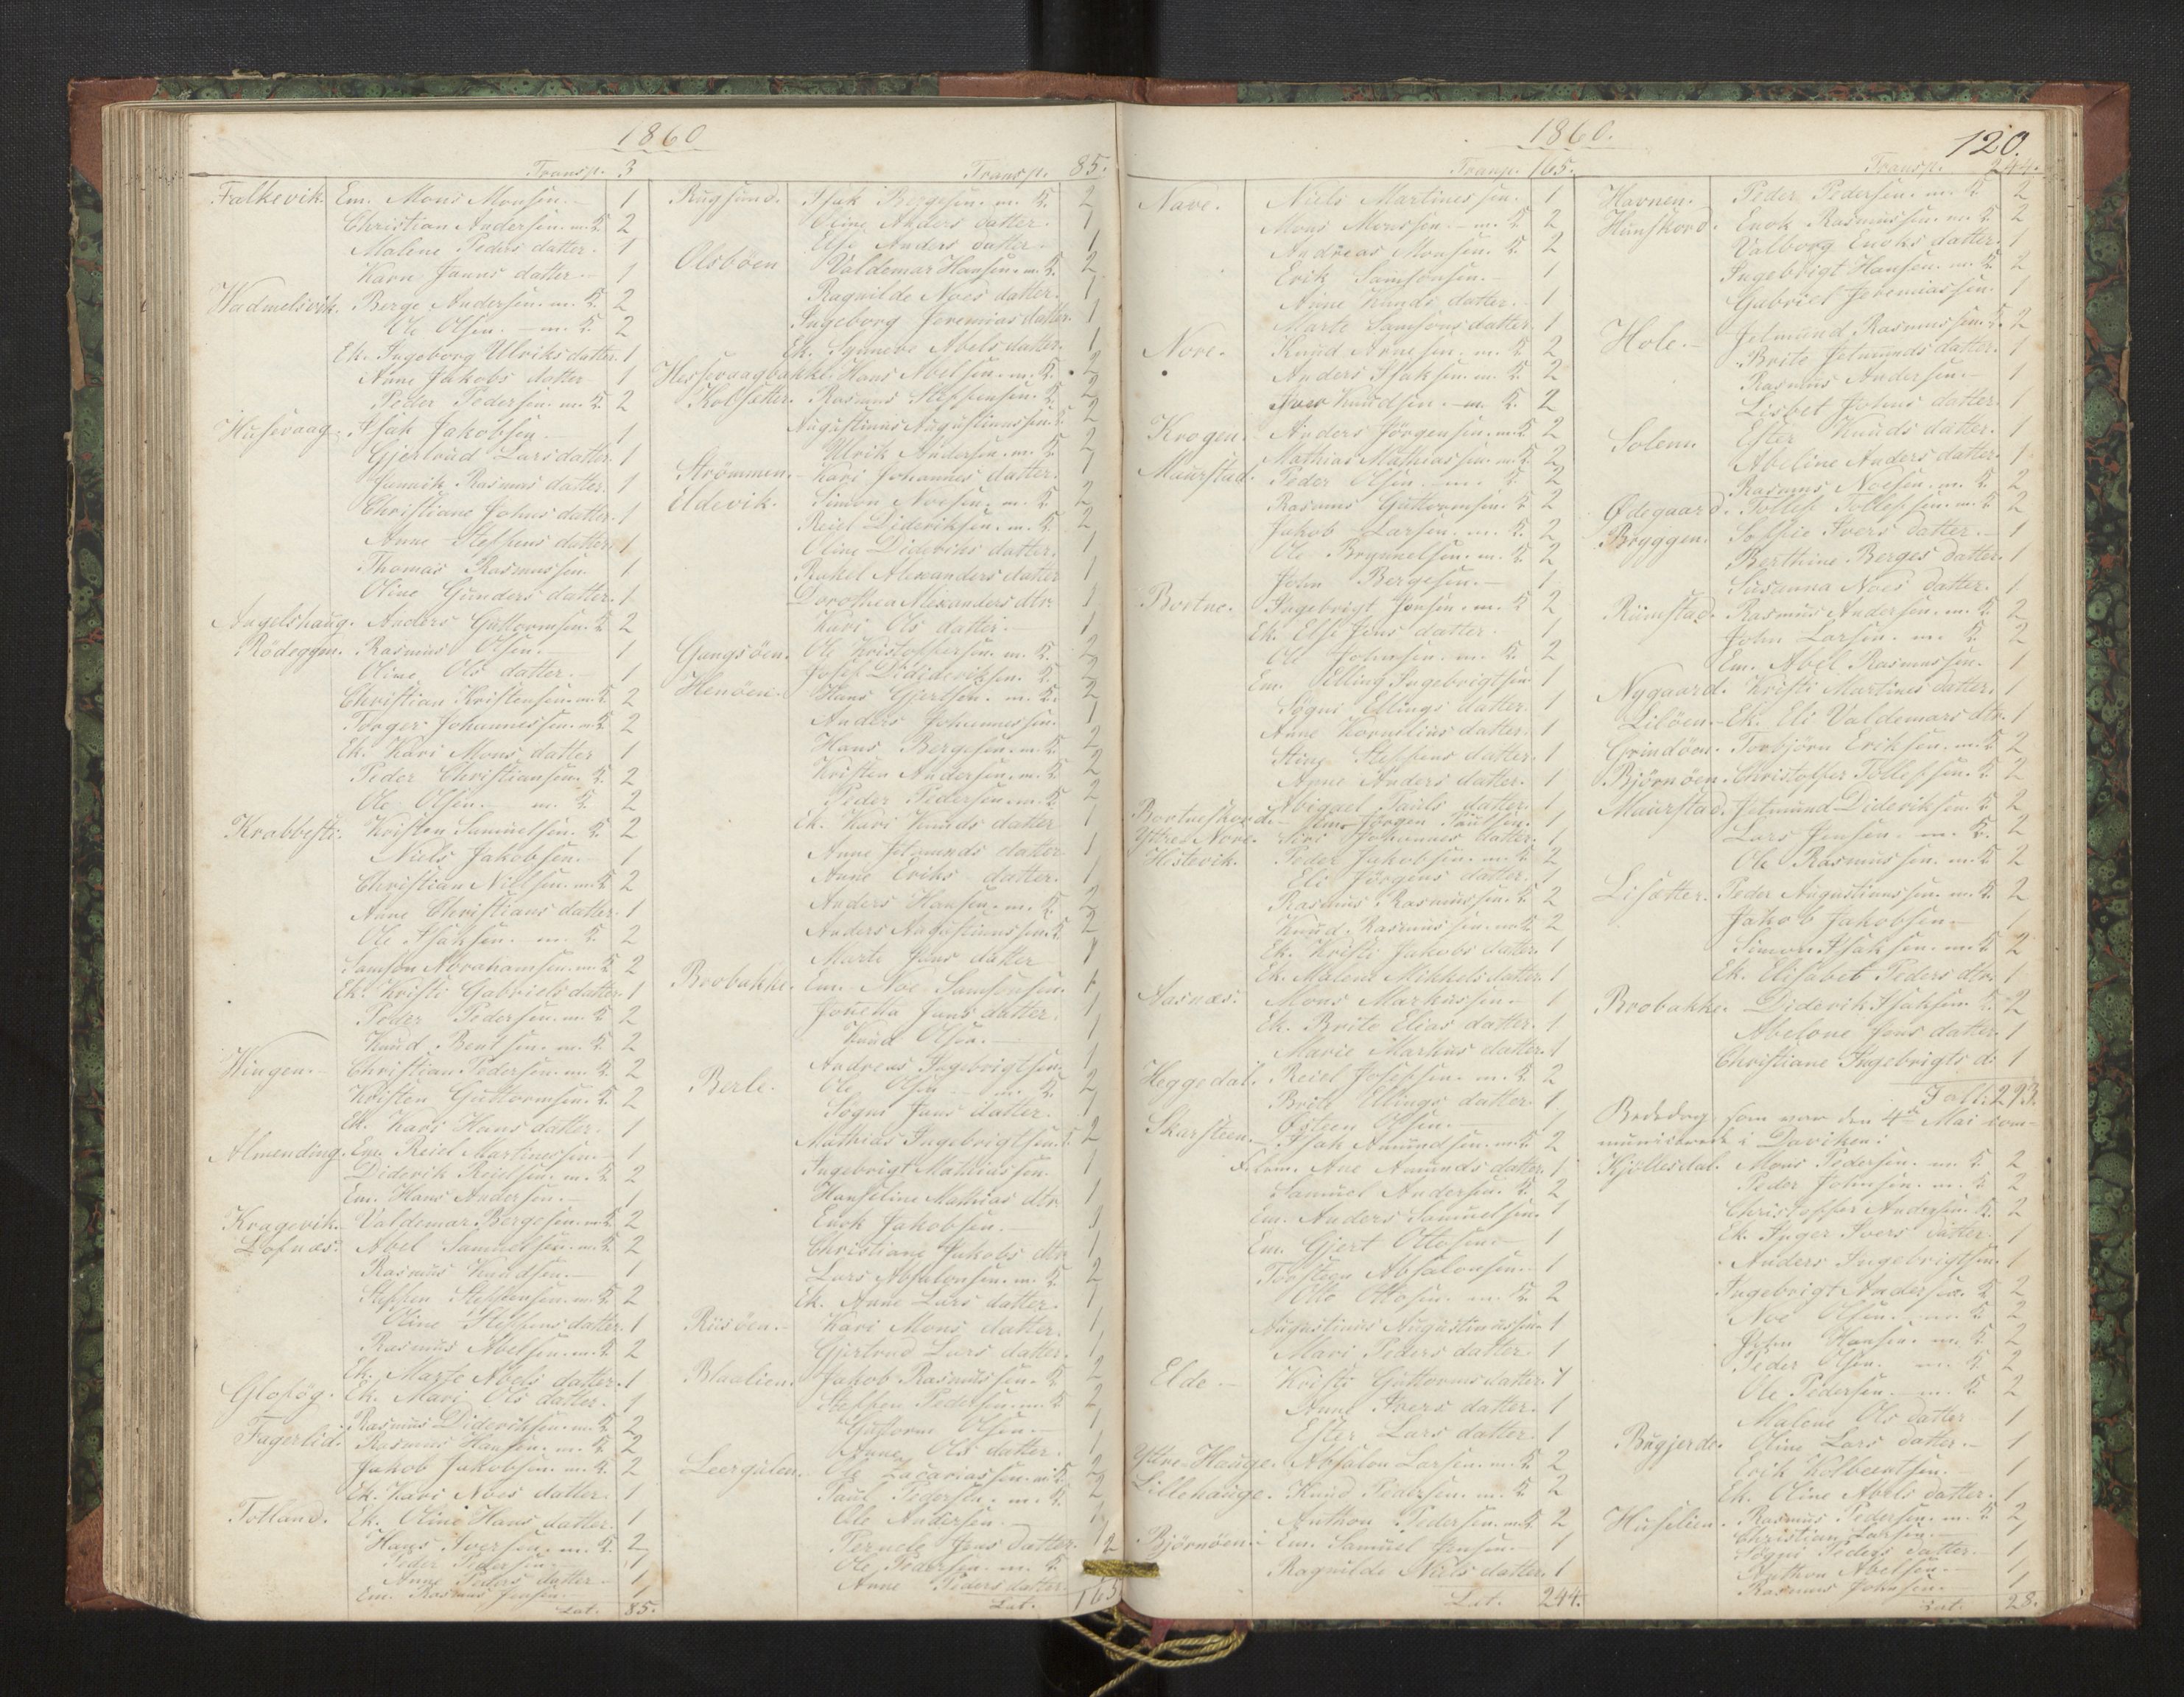 1860
Transp. 3
Falkevik. Em. Mons Monsen. 1
Christian Andersen. m. K. 2
Malene Peders datter. 1
Karn Janns datter. 1
Wadmelsvik. Berge Andersen. m. K. 2
Ole Olsen. m. K. 2
Ek. Ingeborg Ulriks datter. 1
Anne Jakobs datter 1
Peder Pedersen. m. K. 2
Husevaag. Isak Jakobsen 1
Gjertrud Lars datter. 1
Jannik Rasmus datter. 1
Christiane Johns datter. 1
Anne Steffens datter. 1
Thomas Rasmussen 1
Oline Gunders datter. 1
Angelshaug. Anders Guttormsen. K. 2
Rødeggen. Rasmus Olsen. 1
Oline Ols datter. 1
Christian Kristensen. m. K. 2
Torger Johannessen. m. K. 2
Ek. Kari Mons datter 1
Peder Christiansen. K. 2
Ole Olsen. m. K. 2
Krabbest. Kristen Samuelsen. K. 2
Niels Jakobsen. 1
Christian Nillsen. m. K. 2
Anne Christians datter. 1
Ole Isaksen. m. K. 2
Samson Abrahamsen. m. K. 2
Ek. Kristi Gabriels datter. 1
Peder Pedersen. m. K. 2
Knud Bentsen. m. K. 2
Wingen. Christian Pedersen. m. K. 2
Kristen Guttormsen. K. 2
Ek. Kari Hans datter. 1
Almending. Em. Reiel Martinessen. 1
Diderik Reielsen. m. K. 2
Em. Hans Andersen. 1
Kragevik. Valdemar Bergesen. m. K. 2
Løfnæs. Abel Samuelsen. m. K. 2
Rasmus Knudsen. 1
Steffen Steffensen. m. K. 2
Oline Steffens datter. 1
Rasmus Abelsen. m. K. 2
Ek. Marte Abels datter. 1
Gloføg. Ek. Mari Ols datter. 1
Fagerlid. Rasmus Dideriksen. m. K. 2
Rasmus Hansen. m. K. 2
Jakob Jakobsen. m. K. 2
Ek. Kari Noes datter. 1
Totland. Ek. Oline Hans datter. 1
Hans Iversen. m. K. 2
Peder Pedersen. 1
Anne Peders datter. 1
Em. Rasmus Jensen. 1
Lat. 85.
Transp. 85.
Rugsund. Isak Bergesen. m. K. 2
Oline Anders datter. 1
Else Anders datter. 1
Olsbøen Valdemar Hansen. m. K. 2
Ragnilde Noes datter. 1
Ingeborg Jeremias datter. 1
Ek. Synneve Abels datter. 1
Hessevaagbakke. Hans Abelsen. m. K. 2
Kolsætter. Rasmus Steffensen. K. 2
Augustinus Augustinussen. K. 2
Ulrik Andersen. m. K. 2
Strømmen. Kari Johannes datter. 1
Eldevik. Simon Noesen. m. K. 2
Reiel Dideriksen. m. K. 2
Oline Dideriks datter. 1
Rakel Alexanders datter 1
Dorothea Alexanders dtr. 1
Kari Ols datter. 1
Gangsøen. Ole Kristoffersen. m. K. 2
Josef Dideriksen. K. 2
Henøen. Hans Gjertsen. m. K. 2
Anders Johannessen. 1
Hans Bergesen. m. K. 2
Kristen Andersen. m. K. 2
Peder Pedersen. m. K. 2
Ek. Kari Knuds datter 1
Anne Jetmunds datter 1
Anne Eriks datter. 1
Anders Hansen. m. K. 2
Anders Augustinussen. K. 2
Marte Jens datter 1
Brobakke. Em. Noe Samsonsen. 1
Jonetta Jans datter. 1
Knud Olsen. 1
Andreas Ingebrigtsen. 1
Berle. Ole Olsen m. K. 2
Søgni Jans datter. 1
Mathias Ingebrigtsen. K. 2
Ingebrigt Mathiassen. 1
Hanseline Mathias dtr 1
Enok Jakobsen. 1
Christiane Jakobs dtr 1
Lars Absalonsen. m. K. 2
Ek. Anne Lars datter. 1
Riisøen. Kari Mons datter. 1
Gjertrud Lars datter. 1
Blaalien. Jakob Rasmussen. K. 2
Steffen Pedersen. m. K. 2
Guttorm Olsen. 1
Anne Ols datter. 1
Leergulen. Ole Zacariassen. m. K. 2
Paul Pedersen. m. K. 2
Ole Andersen. 1
Pernele Jens datter. 1
Ole Pedersen. m. K. 2
Anne Peders datter.
Lat. 165
1860.
Transp. 165.
Nave. Niels Martinessen. 1
Mons Monssen. m. K. 2
Andreas Monsen. K. 2
Erik Samsonsen. 1
Anne Knuds datter. 1
Marte Samsons datter. 1
Nore. Knud Arnesen. m. K. 2
Anders Isaksen. m. K. 2
Iver Knudsen. m. K. 2
Krogen. Anders Jørgensen. m. K. 2
Mathias Mathiassen. m. K. 2
Maurstad. Peder Olsen. m. K. 2
Rasmus Guttormsen. K. 2
Jakob Larsen. m. K. 2
Ole Brynnelsen. m. K. 2
John Bergesen. 1
Bortne. Ingebrigt Jonsen. m. K. 2
Ek. Else Jens datter. 1
Ole Johnsen. m. K. 2
Em. Elling Ingebrigtsen 1
Søgni Ellings datter. 1
Anne Kornilius datter. 1
Stine Steffens datter. 1
Anne Anders datter. 1
Abigael Pauls datter. 1
Bortneskorde. Em. Jørgen Paulsen. 1
Yttre Nore. Siri Johannes datter. 1
Histevik. Peder Jakobsen. m. K. 2
Eli Jørgens datter. 1
Rasmus Rasmussen. K. 2
Knud Rasmussen. m. K. 2
Ek. Kristi Jakobs datter. 1
Ek. Malene Mikkels datter. 1
Aasnæs. Mons Markussen. 1
Ek. Brite Elias datter. 1
Marie Markus datter. 1
Heggedal. Reiel Josefsen. m. K. 2
Brite Ellings datter. 1
Østen Olsen. 1
Skarsteen. Isak Amundsen. m. K. 2
Ane Amunds datter. 1
Samuel Andersen. K. 2
Em. Anders Samuelsen. 1
Em. Gjert Ottosen. 1
Torsteen Absalonsen. 1
Otto Ottosen. m. K. 2
Augustinus Augustinussen. 1
Mari Peders datter. 1
Elde Kristi Guttorms datter. 1
Anne Ivers datter. 1
Ester Lars datter. 1
Yttre Hauge. Absalon Larsen. m. K. 2
Lillehauge. Knud Pedersen. m. K. 2
Anthon Pedersen. m. K. 2
Bjørnøen. Em. Samuel Jensen. 1
Ragnilde Niels datter. 1
Lat. 244.
120.
Transp. 244.
Havnen. Peder Pedersen. m. K. 2
Hunskord. Enok Rasmussen. m. K. 2
Valborg Enoks datter. 1
Ingebrigt Hansen. m. K. 2
Gabriel Jeremiassen. 1
Hole. Jetmund Rasmussen. K. 2
Brite Jetmunds datter. 1
Rasmus Andersen. 1
Lisbet Johns datter. 1
Solem Ester Knuds datter. 1
Abeline Anders datter. 1
Rasmus Noesen. m. K. 2
Ødegaard. Tollef Tollefsen. m. K. 2
Bryggen. Soffie Ivers datter. 1
Berthine Berges datter. 1
Susanna Noes datter. 1
Rimstad. Rasmus Andersen. m. K. 2
John Larsen. m. K. 2
Em. Abel Rasmussen. 1
Nygaard. Kristi Martines datter. 1
Liløen. Ek. Eli Valdemars dtr. 1
Grindøen. Torbjørn Eriksen. m. K. 2
Bjørnøen. Christoffer Tollefsen. K. 2
Maurstad. Jetmund Dideriksen. K. 2
Lars Jensen. m. K. 2
Ole Rasmussen. m. K. 2
Lisætter. Peder Augustinussen. m. K. 2
Jakob Jakobsen. 1
Simon Isaksen. m. K. 2
Ek. Elisabet Peders dtr. 1
Brobakke. Diderik Isaksen. K. 2
Abelone Jens datter. 1
Christiane Ingebrigts d. 1
Tall: 293.
Bededag som var den 4de Mai com-
municerede i Daviken:
Kjøllesdal. Mons Pedersen. m. K. 2
Peder Johnsen. m. K. 2
Christoffer Andersen. K. 2
Ek. Inger Ivers datter. 1
Anders Ingebrigtsen. 1
Ingebrigt Andersen. K. 2
Noe Olsen. m. K. 2
John Hansen. m. K. 2
Peder Olsen. m. K. 2
Ole Pedersen. m. K. 2
Malene Ols datter 1
Bugjerde. Oline Lars datter. 1
Erik Kolbeentsen. 1
Ek. Oline Abels datter. 1
Huselien. Rasmus Pedersen. m. K. 2
Christian Larsen. 1
Søgni Peders datter. 1
Anthon Abelsen. 1
Rasmus Johnsen. 1
Lat. 28.